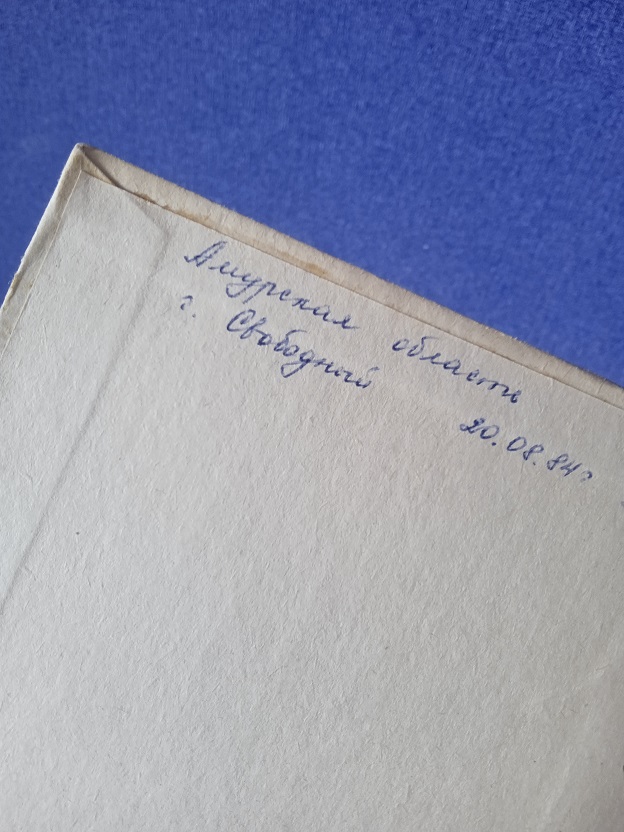 Амурская область
г. Свободный
20.08.84г